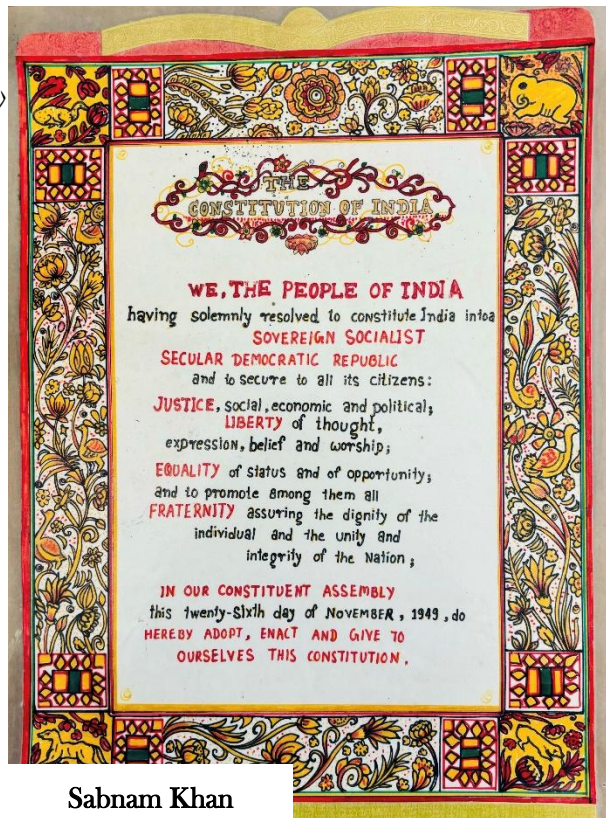 THE
CONSTITUTION OF INDIA
WE, THE PEOPLE OF INDIA
having solemnly resolved to constitute India into a
SOVEREIGN SOCIALIST
SECULAR DEMOCRATIC REPUBLIC
and to secure to all its citizens:
JUSTICE, social, economic and political;
LIBERTY of thought,
expression, belief and worship;
EQUALITY of status and of opportunity;
and to promote among them all
FRATERNITY assuring the dignity of the
individual and the unity and
integrity of the Nation;
IN OUR CONSTITUENT ASSEMBLY
this twenty-sixth day of NOVEMBER, 1949, do
HEREBY ADOPT, ENACT AND GIVE TO
OURSELVES THIS CONSTITUTION.
Sabnam Khan